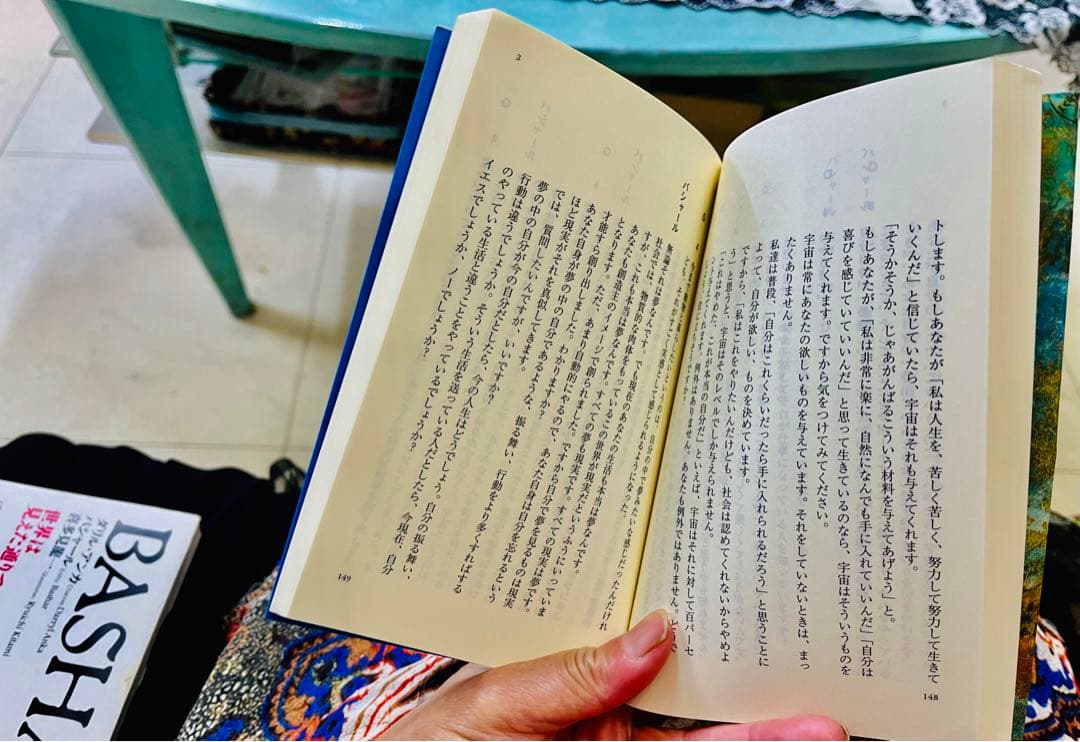 トします。もしあなたが「私は人生を、苦しく苦しく、努力して努力して生きて
いくんだ」と信じていたら、宇宙はそれも与えてくれます。
「そうかそうか、じゃあがんばるこういう材料を与えてあげよう」と。
もしあなたが、「私は非常に楽に、自然になんでも手に入れていいんだ」「自分は
喜びを感じていていいんだ」と思って生きているのなら、宇宙はそういうものを
与えてくれます。ですから気をつけてみてください。
宇宙は常にあなたの欲しいものを与えています。それをしていないときは、まっ
たくありません。
私達は普段、「自分はこれくらいだったら手に入れられるだろう」と思うことに
よって、自分が欲しい、ものを決めています。
ですから、「私はこれをやりたいんだけども、社会は認めてくれないからやめよ
う」と思うと、宇宙はそのレベルでしか与えられません。
「これはやめた、これが本当の自分だ」といえば、宇宙はそれに対して百パーセ
ントサポートしてくれます。例外はありません。あなたも例外ではありません。
148
3
バシャール
無論それは夢なんです。
社会では、物質的な肉体をもっているこの世界が現実だというふうにいっていま
すが、これも本当は夢なんです。すべての夢も現実です。
あなたも創造主のイメージで創られました。ですから自分で夢を見るものは現実
となります。ただ、あまり自動的にやるので、あなた自身は自分を忘れるという
才能すら創り出しました。わかりますか?
あなた自身が夢の中の自分であるような、振る舞い、行動をより多くすればする
ほど現実がそれを真似してきます。
では、質問したいんですが、いいですか?
夢の中の自分が今の自分だとしたら、今の人生はどうでしょう。自分の振る舞い、
行動は違うでしょうか。そういう生活を送っている人だとしたら、今現在、自分
のやっている生活と違ったことをやっているでしょうか?
イエスでしょうか、ノーでしょうか?
149
BASHA
ダリル・アンカ
バシャール
喜多見龍一
Darryl Anka
Bashar
Ryuichi Kitami
世界は
見えた通り